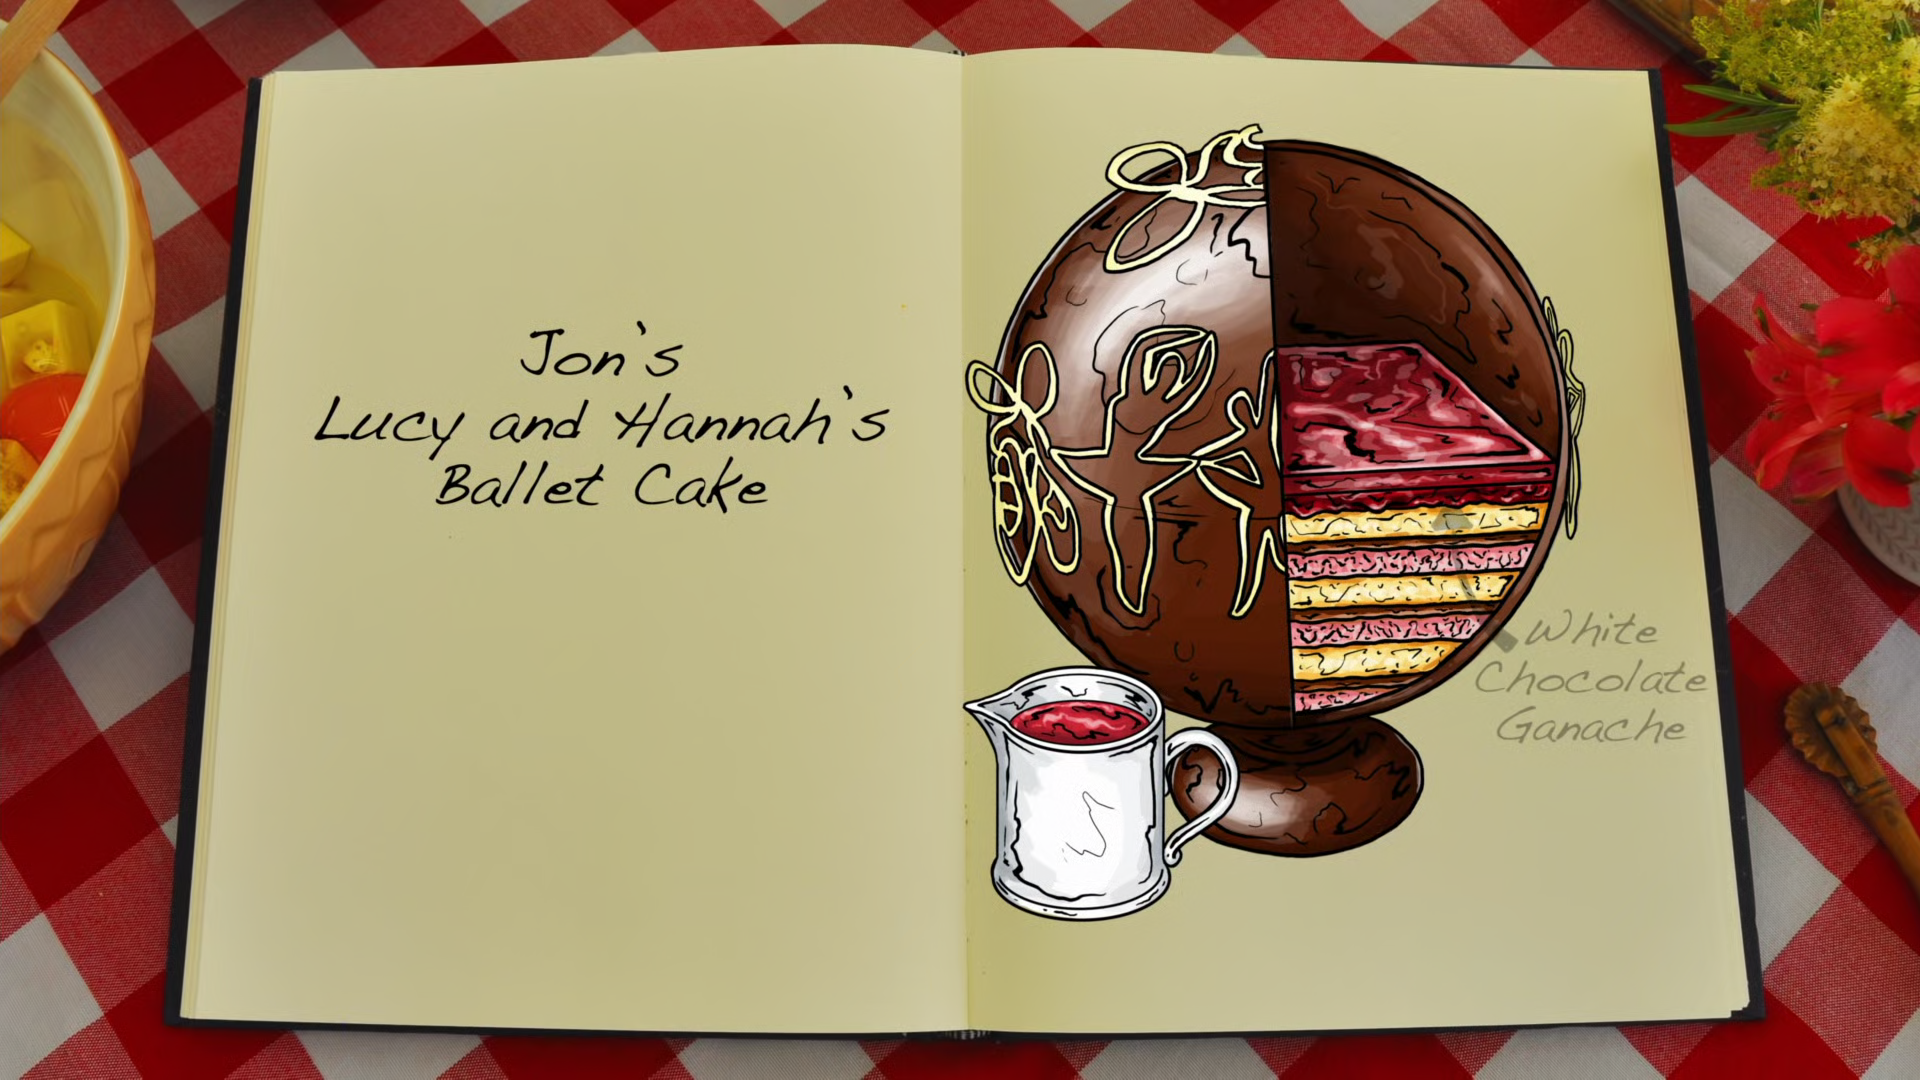 Jon's
Lucy and Hannah's
Ballet Cake
White
Chocolate
Ganache